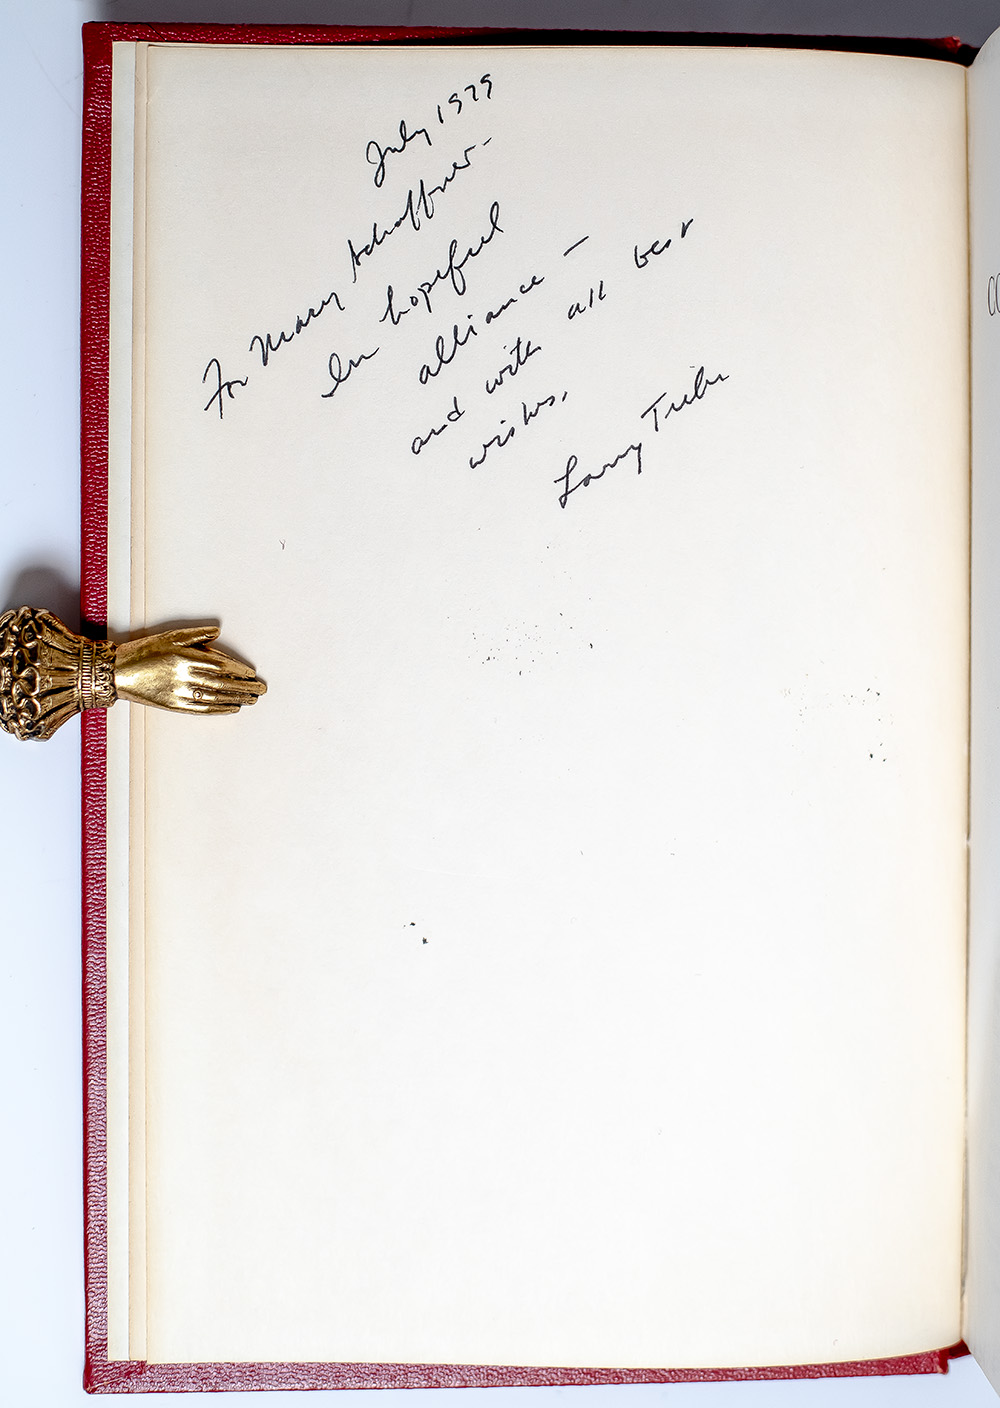 July 1979
For Mary Schaffner-
In hopeful
alliance —
and with all best
wishes,
Larry Tribe